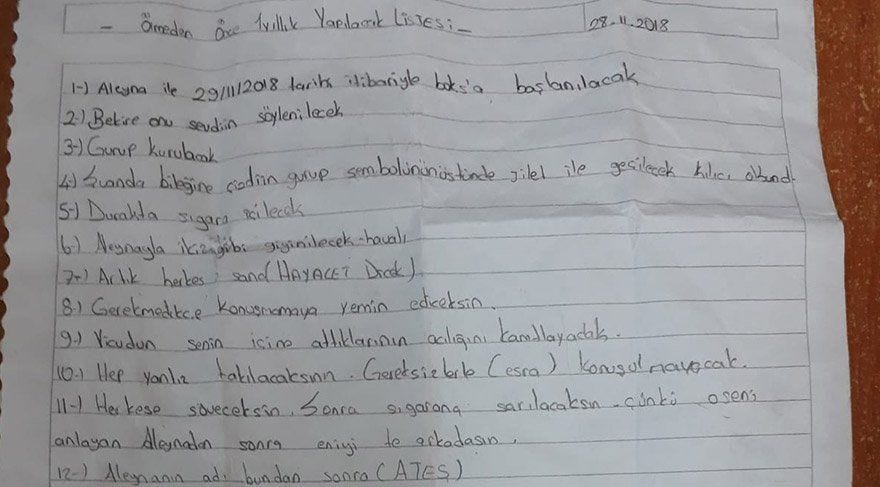 - Ölmeden Önce 1 yıllık Yapılacak LİSTESİ - 28.11.2018
1-) Aleyna ile 29/11/2018 tarihi itibariyle boks'a başlanılacak
2-) Bekire onu sevdiin söylenilecek
3-) Gurup kurulacak
4-) Şuanda bileğine çizdiin gurup sembolününüstünde jilet ile geçilecek kılıcı
5-) Durakta sigara içilecek
6-) Aleynayla ikizgibi giyinilecek-havalı
7-) Artık herkes sana (HAYALET
8-) Gerekmedikçe konuşmamaya yemin ediceksin.
9-) Vicudun senin içine attıklarının acılığını kanıtlayacak.
10-) Hep yanlız takılacaksın. Gereksizlerle (esra) konuşulmayacak.
11-) Herkese söveceksin. Sonra sigarana sarılacaksın çünkü o seni
anlayan Aleynadan sonra eniyi arkadaşın.
12-) Aleynanın adı bundan sonra (ATEŞ)